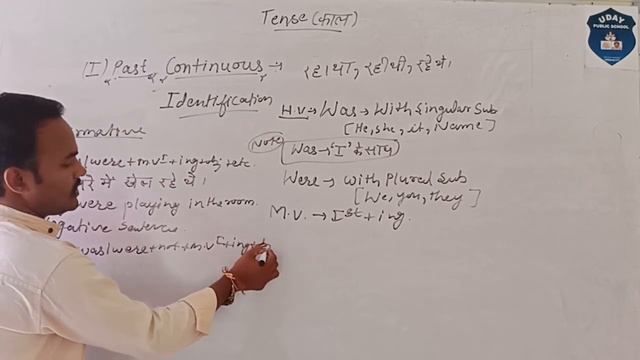 Tense (काल)
UDAY
PUBLIC SCHOOL
(I) Past Continuous → रहा था, रही थी, रहे थे।
Identification
H.V → Was → With Singular Sub
[He, she, it, Name]
Note
Was → 'I' के साथ
Were → with Plural Sub
[We, you, they]
M.V. → Ist + ing.
rmative
/were + m.vI + ing + obj + etc.
रे में खेल रहे थे।
were playing in the room.
gative sentence.
was/were + not + m.vI + ing +